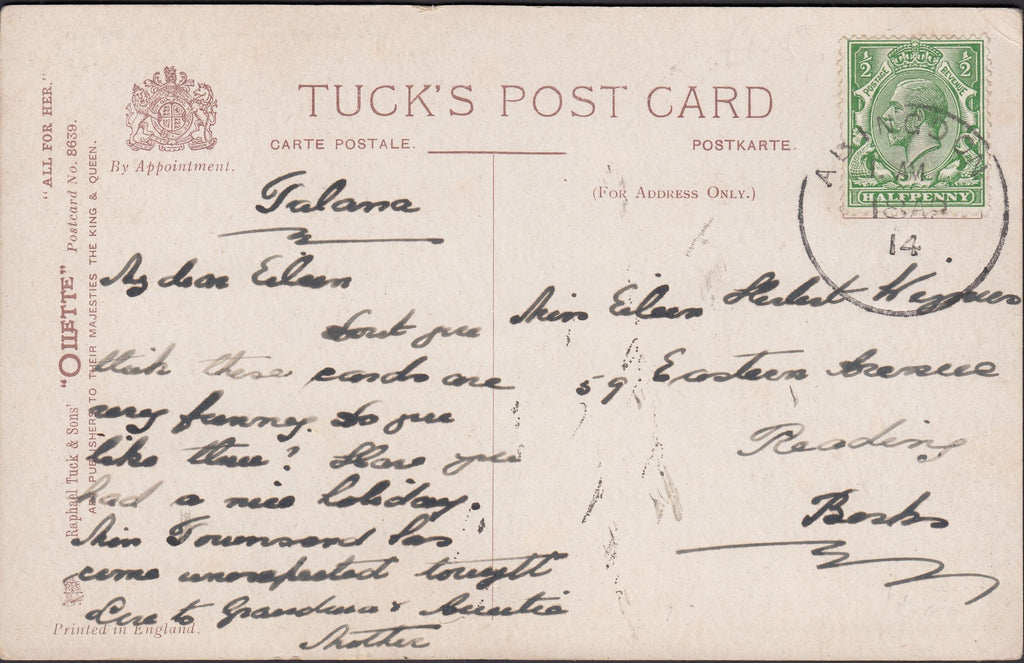 TUCK'S POST CARD
CARTE POSTALE.
POSTKARTE.
By Appointment.
(For Address Only.)
"ALL FOR HER."
Raphael Tuck & Sons' "OILETTE" Postcard No. 8639.
ART PUBLISHERS TO THEIR MAJESTIES THE KING & QUEEN.
Printed in England.
1/2 1/2
POSTAGE REVENUE
HALFPENNY
AM
14
Talana
My dear Eileen
Dont you
think these cards are
very funny. Do you
like them? Have you
had a nice holiday.
Miss Townsend has
come unexpected tonight
Love to Grandma & Auntie
Mother
Miss Eileen Herbert
59 Eastern Avenue
Reading
Berks